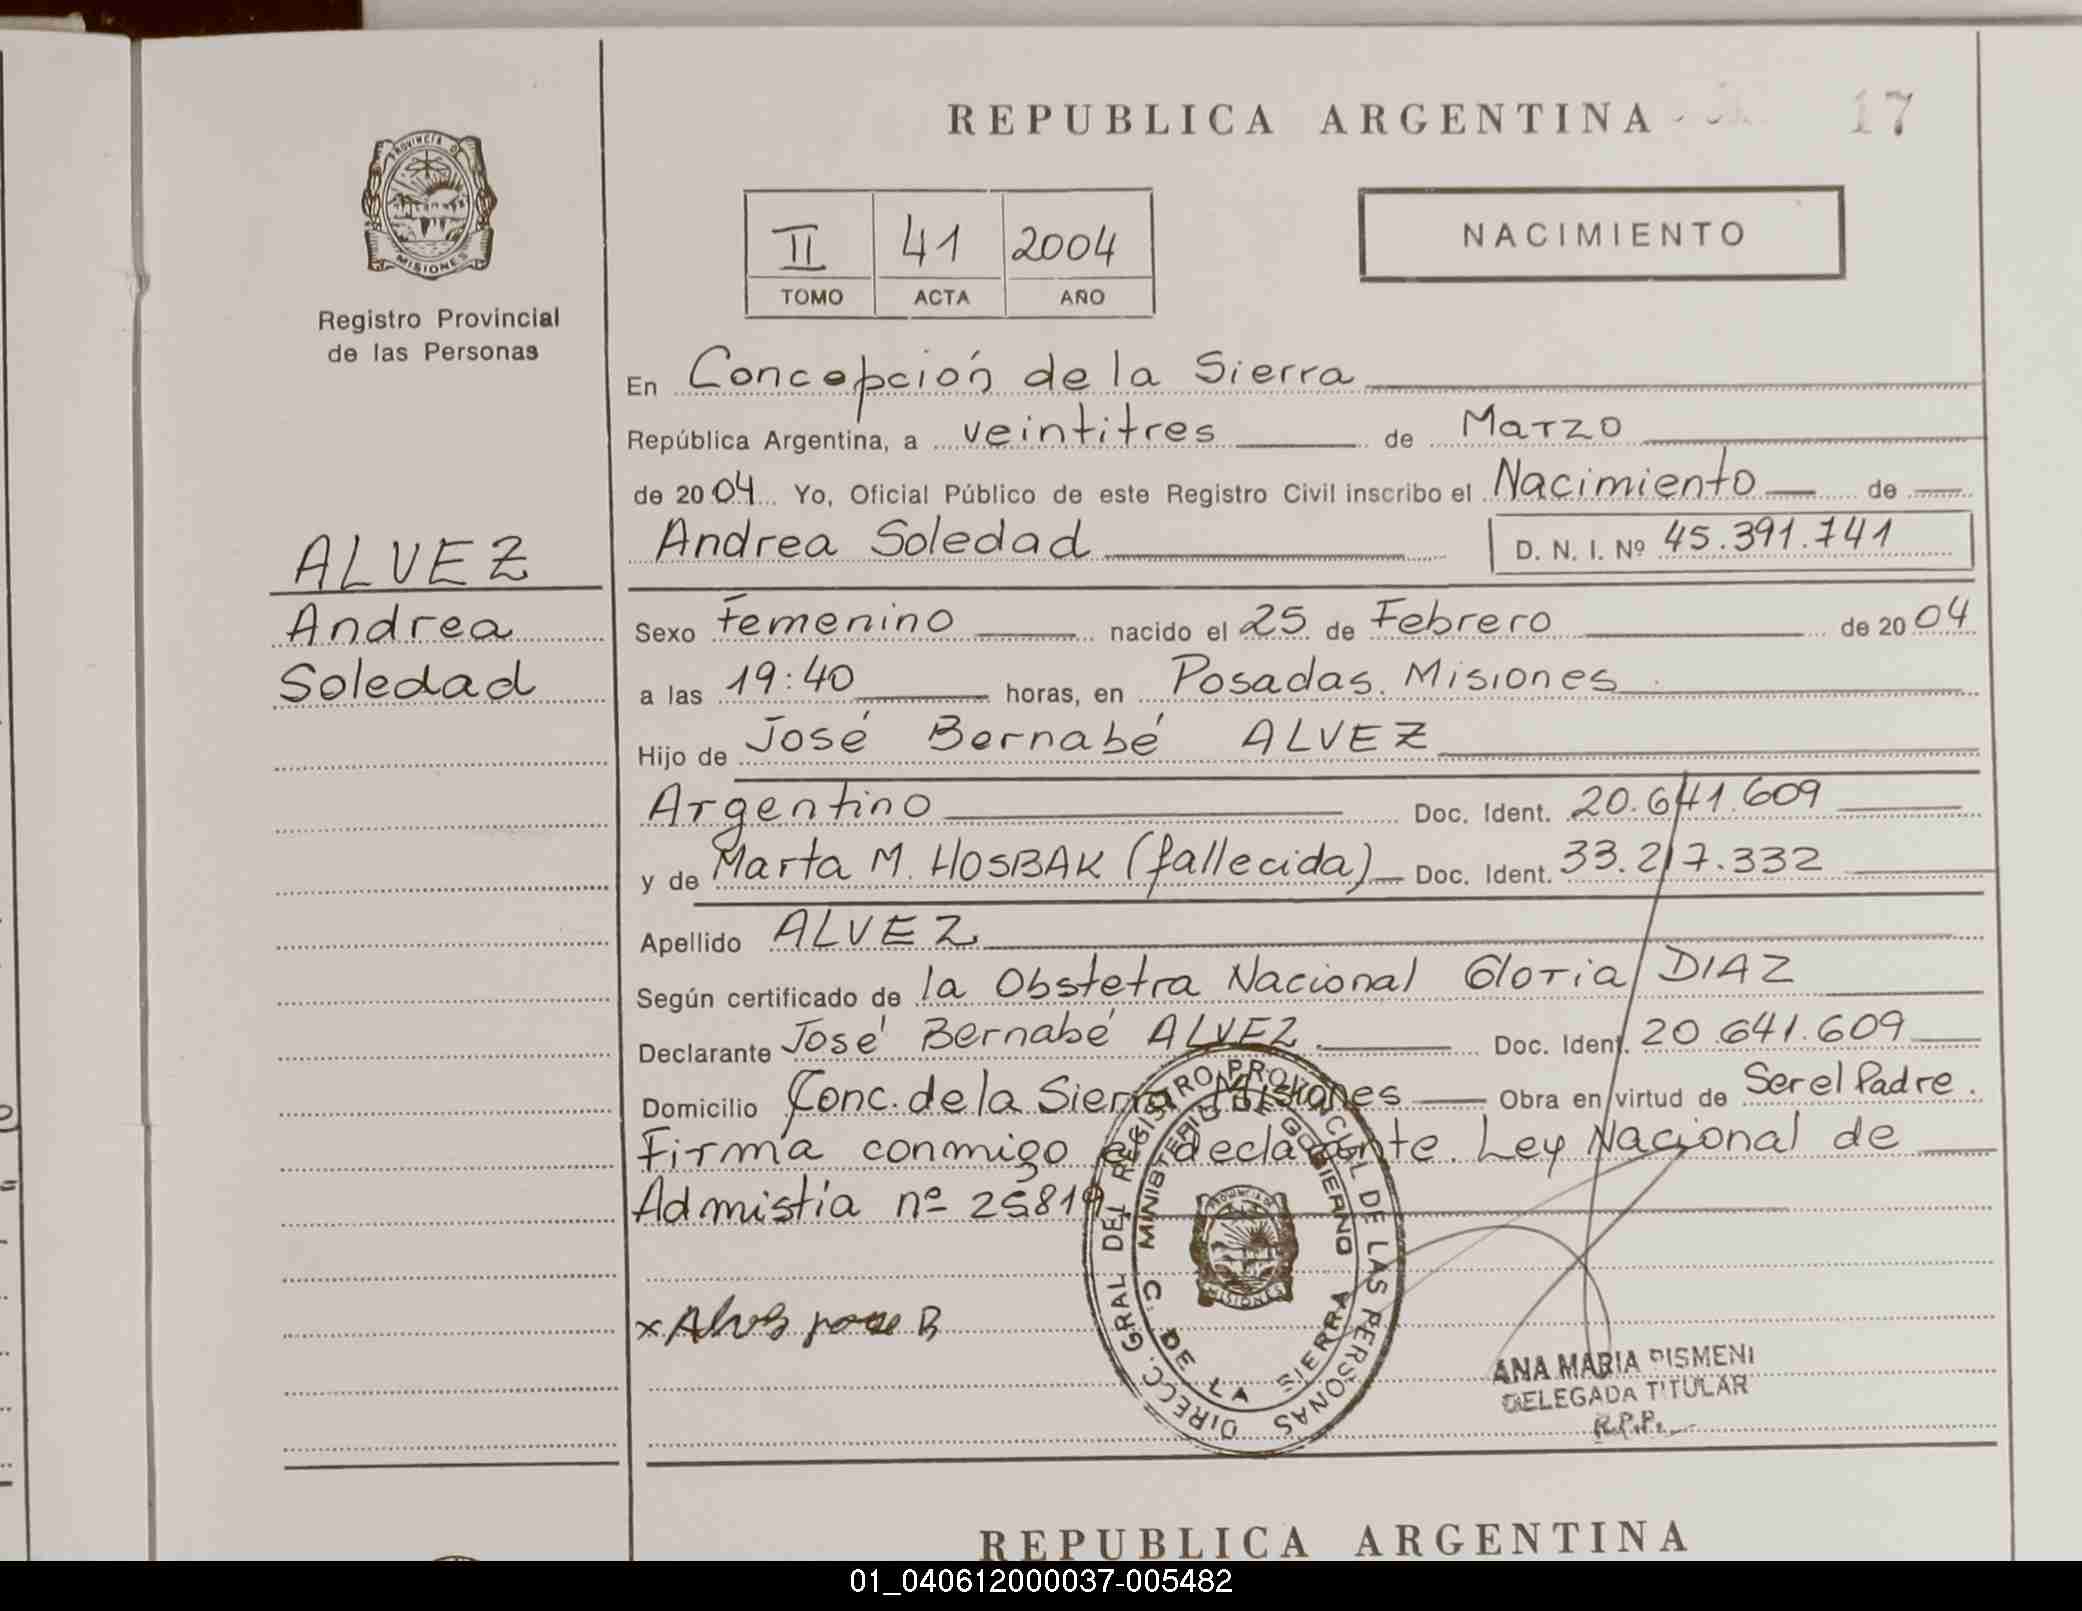 REPUBLICA ARGENTINA
17
PROVINCIA DE
MISIONES
Registro Provincial
de las Personas
II 41 2004
TOMO ACTA AÑO
NACIMIENTO
En Concepción de la Sierra
República Argentina, a veintitres de Marzo
de 2004 Yo, Oficial Público de este Registro Civil inscribo el Nacimiento de
Andrea Soledad D. N. I. Nº 45.391.741
ALVEZ
Andrea
Soledad
Sexo Femenino nacido el 25 de Febrero de 2004
a las 19:40 horas, en Posadas. Misiones
Hijo de José Bernabé ALVEZ
Argentino Doc. Ident. 20.641.609
y de Marta M. HOSBAK (fallecida) Doc. Ident. 33.217.332
Apellido ALVEZ
Según certificado de la Obstetra Nacional Gloria DIAZ
Declarante José Bernabé ALVEZ Doc. Ident. 20.641.609
Domicilio Conc. de la Sierra Misiones Obra en virtud de Ser el Padre.
Firma conmigo el declarante. Ley Nacional de
Admistia nº 25819
DIRECC. GRAL DEL REGISTRO PROVINCIAL DE LAS PERSONAS
MINISTERIO DE GOBIERNO
C. DE LA SIERRA
PROVINCIA DE
MISIONES
x B
ANA MARIA PISMENI
DELEGADA TITULAR
R.P.P.
REPUBLICA ARGENTINA
01_040612000037-005482